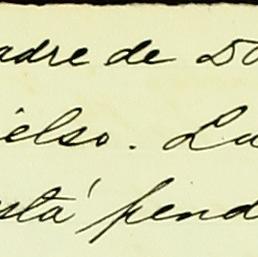 adre de Do
ielso. Lu
stá pend